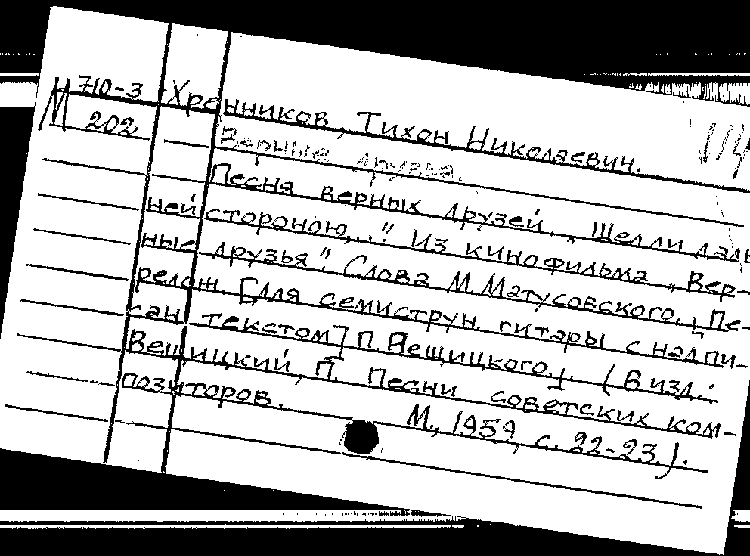 М 710-3 Хренников, Тихон Николаевич.
202 Верные друзья.
Песня верных друзей. „Шел ли даль
ней стороною,.." Из кинофильма „Вер-
ные друзья". Слова М. Матусовского. [Пе-
релож. [для семиструн. гитары с надпи-
сан. текстом] П. Вещицкого.] (В изд.:
Вещицкий, П. Песни советских ком-
позиторов. М., 1959, с. 22-23.).